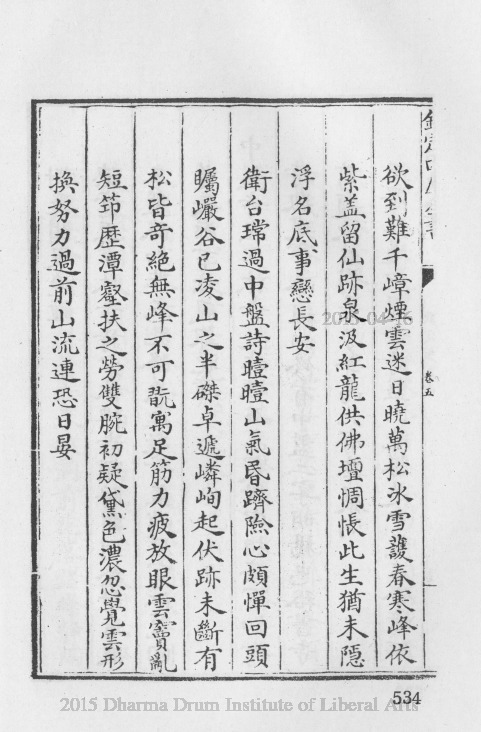 欽定四庫全書
卷五
欲到難千嶂煙雲迷日曉萬松冰雪護春寒峰依
紫盖留仙跡泉汲紅龍供佛壇惆悵此生猶未隱
浮名底事戀長安
衛台瑺過中盤詩曀曀山氣昬躋險心頗憚回頭
矚巖谷已凌山之半磔卓遞嶙峋起伏跡未斷有
松皆奇絶無峰不可翫寓足筋力疲放眼雲竇亂
短筇歷潭壑扶之勞雙腕初疑黛色濃忽覺雲形
換努力過前山流連恐日晏
534
2015 Dharma Drum Institute of Liberal Arts